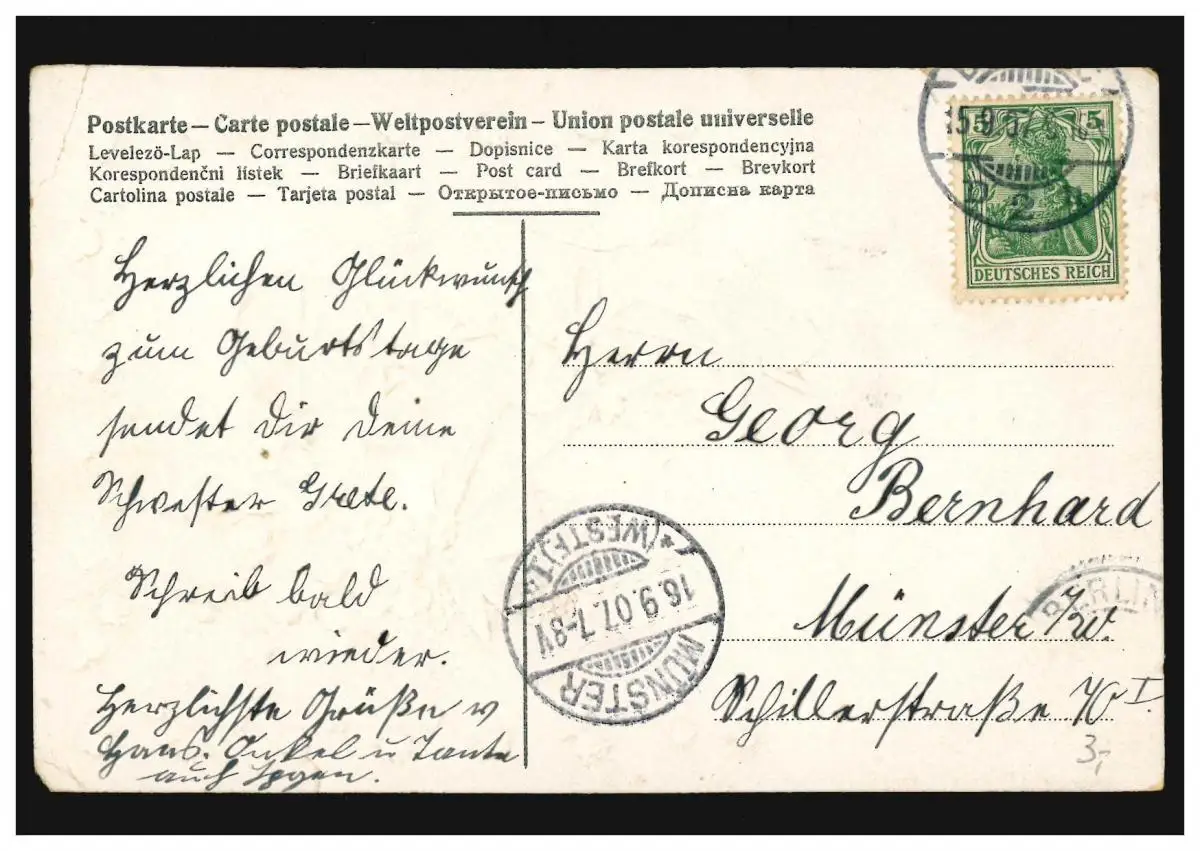 Postkarte — Carte postale — Weltpostverein — Union postale universelle
Levelezö-Lap — Correspondenzkarte — Dopisnice — Karta korespondencyjna
Korespondenčni listek — Briefkaart — Post card — Brefkort — Brevkort
Cartolina postale — Tarjeta postal — Открытое-письмо — Дописна карта
5 5
DEUTSCHES REICH
15.9.07
2
Herzlichen Glückwunsch
zum Geburtstage
sendet Dir Deine
Schwester Grete.
Schreib bald
wieder.
Herzlichste Grüße v
Hans. Onkel u Tante
auch
Herrn
Georg
Bernhard
Münster i/W.
Schillerstraße 70 I.
MÜNSTER
16.9.07.7-8V
*(WESTF.)1*
BERLIN
3,-